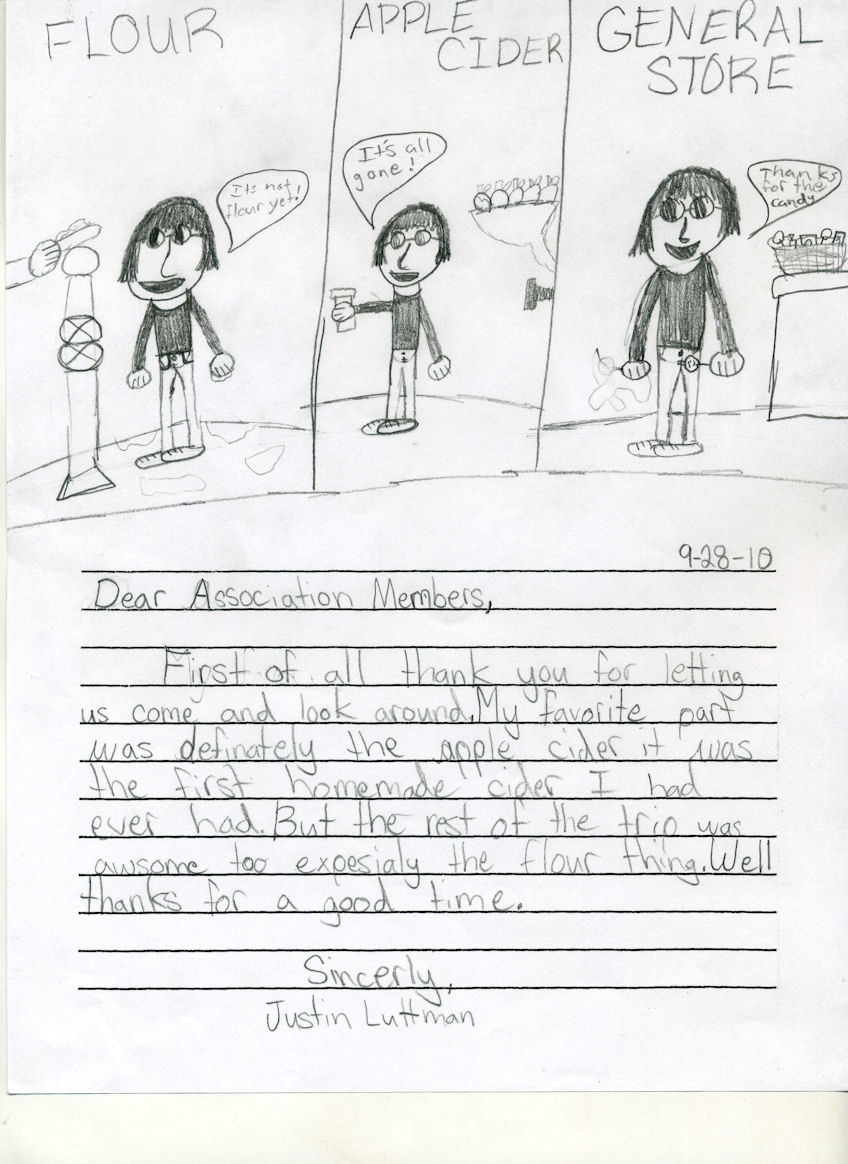 FLOUR
APPLE
CIDER
GENERAL
STORE
Its not
flour yet!
It's all
gone!
Thanks
for the
candy
9-28-10
Dear Association Members,
First of all thank you for letting
us come and look around. My favorite part
was definately the apple cider it was
the first homemade cider I had
ever had. But the rest of the trip was
awsome too expesialy the flour thing. Well
thanks for a good time.
Sincerly,
Justin Luttman